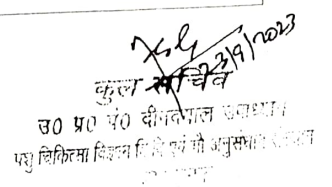 23/9/2023
कुल सचिव
उ0 प्र0 पं0 दीनदयाल उपाध्याय
पशु चिकित्सा विज्ञान वि वि एवं गौ अनुसंधान संस्थान